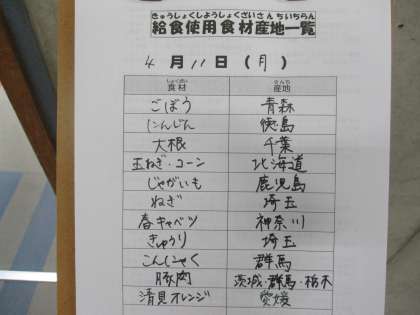 きゅうしょくしようしょくざいさんちいちらん
給食使用食材産地一覧
4月11日(月)
しょくざい さんち
食材 産地
ごぼう 青森
にんじん 徳島
大根 千葉
玉ねぎ・コーン 北海道
じゃがいも 鹿児島
ねぎ 埼玉
春キャベツ 神奈川
きゅうり 埼玉
こんにゃく 群馬
豚肉 茨城・群馬・栃木
清見オレンジ 愛媛